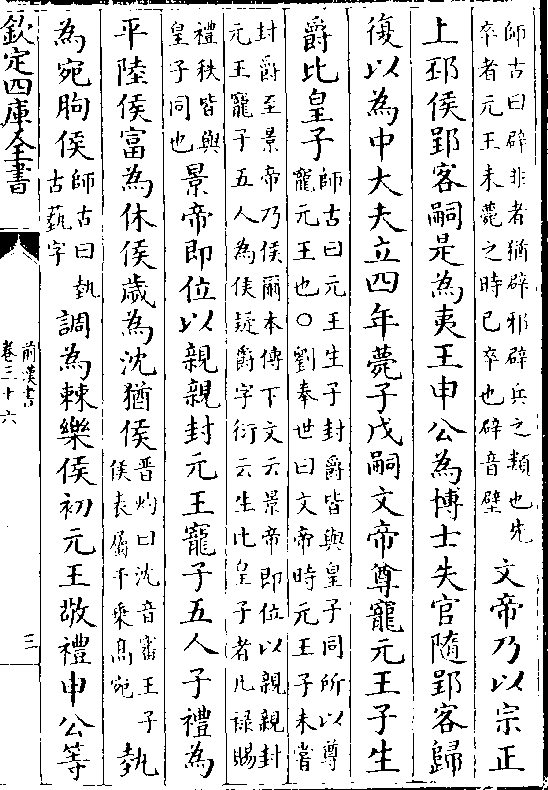 師古曰辟非者猶辟邪辟兵之類也先
卒者元王未薨之時已卒也辟音壁
文帝乃以宗正
上邳侯郢客嗣是為夷王申公為博士失官隨郢客歸
復以為中大夫立四年薨子戊嗣文帝尊寵元王子生
爵比皇子
師古曰元王生子封爵皆與皇子同所以尊
寵元王也○劉奉世曰文帝時元王子未嘗
封爵至景帝乃侯爾本傳下文云景帝即位以親親封
元王寵子五人為侯疑爵字衍云生比皇子者凡祿賜
禮秩皆與
皇子同也
景帝即位以親親封元王寵子五人子禮為
平陸侯富為休侯歲為沈猶侯
晋灼曰沈音審王子
侯表屬千乘高宛
埶
為宛朐侯
師古曰埶
古藝字
調為棘樂侯初元王敬禮申公等
欽定四庫全書
前漢書
卷三十六
三